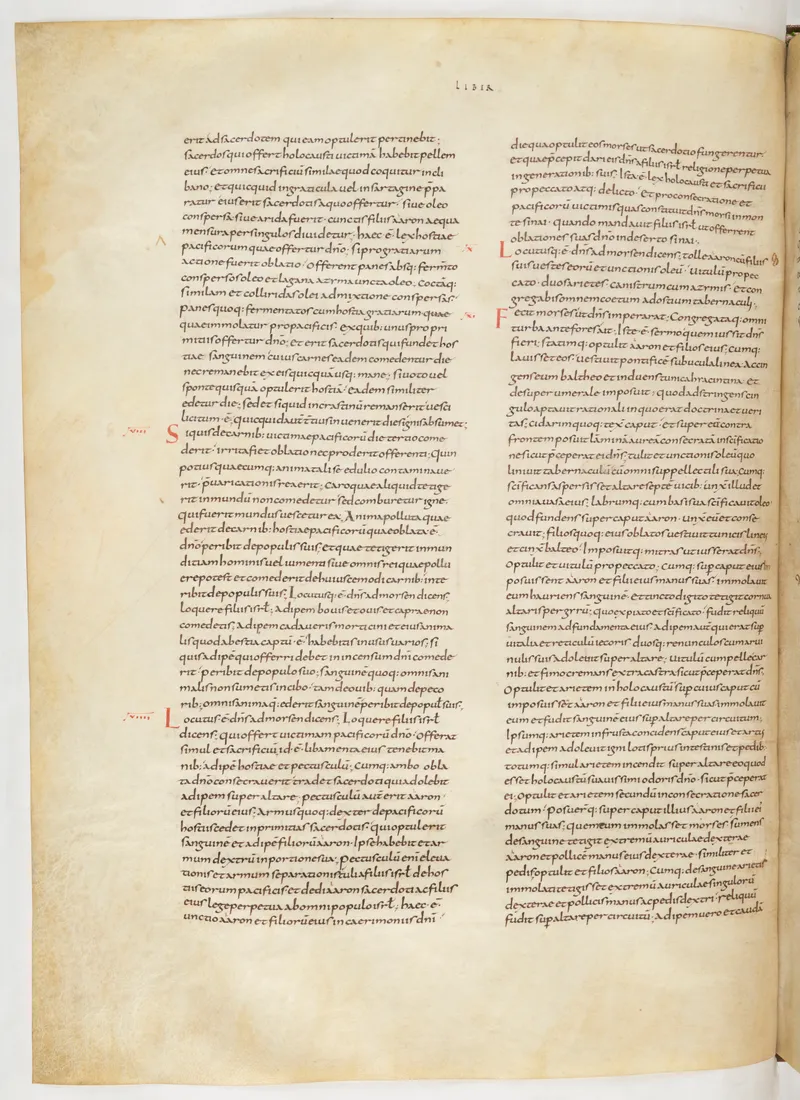 LIBER
erit ad sacerdotem qui eam optulerit pertinebit;
sacerdos qui offert holocausti uictimā habebit pellem
eius; et omne sacrificiū similae quod coquitur in cli
bano; et quicquid in graticula uel in sartagine p̄pa
ratur eius erit sacerdotis a quo offertur; siue oleo
conspersa siue arida fuerit; cunctis filiis aaron aequa
mensura per singulos diuidetur; haec ē lex hostiae
pacificorum quae offertur dn̄o; si pro gratiarum
actione fuerit oblatio; offerent panes absq; fermto
conspersos oleo et lagana azyma uncta oleo; coctāq;
similam et collyridas olei admixtione conspersas;
panesquoq; fermentatos cum hostia gratiarum quae
quae immolatur pro pacificis; ex quib; unus pro pri
mitiis offertur dn̄o; et erit sacerdotis qui fundet hos
tiae sanguinem cuius carnes eadem comedentur die
nec remanebit ex eis quicquā usq; mane; si uoto uel
sponte quisquā optulerit hostiā; eadem similiter
edetur die; sed et si quid in crastinū remanserit uesci
licitum ē; quicquid aut tertius inuenerit dies ignis absumet;
Si quis de carnib; uictimae pacificorū die tertio come
derit irrita fiet oblatio nec proderit offerenti; quin
potius quaecumq; anima tali se edulio contaminaue
rit p̄uaricationis rea erit; caro quae aliquid tetige
rit inmundū non comedetur sed comburetur igne;
qui fuerit mundus uescetur ex ea; Anima polluta quae
ederit de carnib; hostiae pacificorū quae oblata ē
dn̄o peribit de populis suis; et quae tetigerit inmun
ditiam hominis uel iumenti siue omnis rei quae pollu
ere potest et comederit de huiuscemodi carnib; inte
ribit de populis suis; Locutusq; ē dn̄s ad mosen dicens;
loquere filiis isrl; adipem bouis et ouis et caprae non
comedetis; adipem cadaueris morticini et eius anima
lis quod a bestia captū ē habebitis in usus uarios; si
quis adipē qui offerri debet in incensum dn̄i comede
rit peribit de populo suo; sanguinē quoq; omnis ani
malis non sumetis in cibo; tam de auib; quam de peco
rib; omnis anima q; ederit sanguinē peribit de populis suis;
Locutus ē dn̄s ad mosen dicens; Loquere filiis isrl
dicens; qui offert uictimam pacificorū dn̄o; offerat
simul et sacrificiū id ē libamenta eius tenebit ma
nib; adipē hostiae et pectusculū; Cumq; ambo obla
ta dn̄o consecrauerit tradet sacerdoti qui adolebit
adipem super altare; pectusculū aut erit aaron
et filiorū eius; armusquoq; dexter de pacificorū
hostiis cedet in primitias sacerdotis; qui optulerit
sanguinē et adipē filiorū aaron; ipse habebit et ar
mum dextrū in portione sua; pectusculū enī eleua
tionis et armum separationis tuli a filiis isrl de hos
tiis eorum pacificis et dedi aaron sacerdoti ac filiis
eius lege perpetua ab omni populo isrl; haec ē
unctio aaron et filiorū eius in caerimoniis dn̄i
die qua optulit eos moses ut sacerdotio fungerentur
et quae p̄cepit dari eis dn̄s a filiis isrl religione perpetua
in generationib; suis; Ista ē lex holocausti et sacrificii
pro peccato atq; delicto; et pro consecratione et
pacificorū uictimis quas constituit dn̄s mosi in mon
te sinai quando mandauit filiis isrl ut offerrent
oblationes suas dn̄o in deserto sinai;
Locutusq; ē dn̄s ad mosen dicens; tolle aaron cū filiis
suis uestes eorū et unctionis oleū; uitulū pro pec
cato duos arietes canistrum cum azymis; et con
gregabis omnem coetum ad ostium tabernaculi;
Fecit moses ut dn̄s imperarat; Congregataq; omni
turba ante fores ait; Iste ē sermo quem iussit dn̄s
fieri; statimq; optulit aaron et filios eius; cumq;
lauisset eos; uestiuit pontificē subucula linea; accin
gens eum baltheo et induens tunica hyacintina; et
desuper umerale imposuit; quod adstringens cin
gulo aptauit rationali in quo erat doctrina et ueri
tas; cidarim quoq; texit caput; et super eū contra
frontem posuit laminā aureā consecratā in scificatio
ne sicut p̄ceperat ei dn̄s; tulit et unctionis oleū quo
liniuit tabernaculū cū omni suppellectili sua; Cumq;
scificans aspersisset altare septē uicib; unxit illud et
omnia uasa eius; labrumq; cum basi sua scificauit oleo;
quod fundens super caput aaron unxit eū et conse
crauit; filiosquoq; eius oblatos uestiuit tunicis lineis
et cinxit balteo; Imposuitq; mitras ut iusserat dn̄s;
Optulit et uitulū pro peccato; cumq; sup caput eius im
posuissent aaron et filii eius manus suas; immolauit
eum hauriens sanguinē; et tincto digito tetigit cornua
altaris per gyrū; quo expiato et scificato; fudit reliquū
sanguinem ad fundamenta eius; adipem aut qui erat sup
uitalia et reticulū iecoris duosq; renunculos cum arui
nulis suis adoleuit super altare; uitulū cum pelle car
nib; et fimo cremans extra castra sicut p̄ceperat dn̄s;
Optulit et arietem in holocaustū sup cuius caput cū
imposuissent aaron et filii eius manus suas immolauit
eum et fudit sanguinē eius sup altare per circuitum;
Ipsumq; arietem in frusta concidens caput eius et artus
et adipem adoleuit igni lotis prius intestinis et pedib;
totumq; simul arietem incendit super altare eo quod
esset holocaustū suauissimi odoris dn̄o; sicut p̄ceperat
ei; Optulit et arietem secundū in consecratione sacer
dotum; posueruntq; super caput illius aaron et filii ei
manus suas; quem cum immolasset moses; sumens
de sanguine tetigit extremū auriculae dexterae
aaron et pollicē manus eius dexterae similiter et
pedis; optulit et filios aaron; Cumq; de sanguine arietis
immolati tetigisset extremū auriculae singulorū
dexterae et pollicis manus ac pedis dextri; reliquū
fudit sup altare per circuitū; Adipem uero et caudā